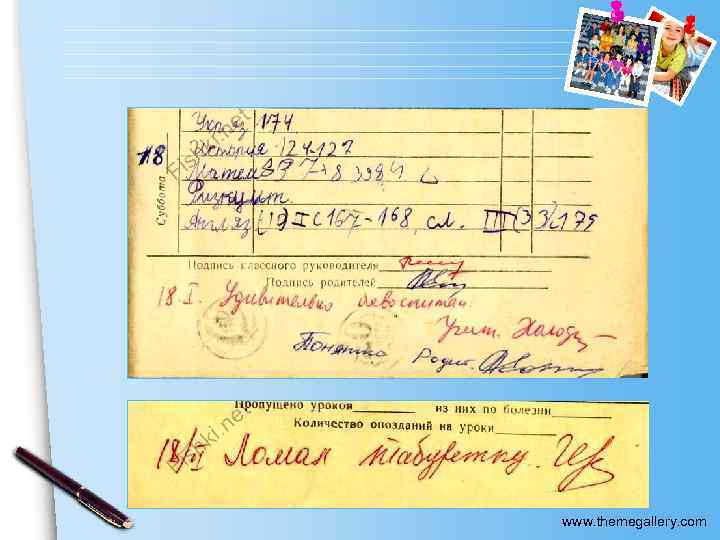 Укр. яз 174
18 История 124-122
Матем
Физкульт.
Англ. яз (1) I с 167-168, сл. III (33) с 179
Суббота
Подпись классного руководителя
Подпись родителей
18.I. Удивительно невоспитан.
Учит.
Понятно Родит.
Пропущено уроков из них по болезни
Количество опозданий на уроки
18/I Ломал табуретку.
Fishki.net
www.themegallery.com